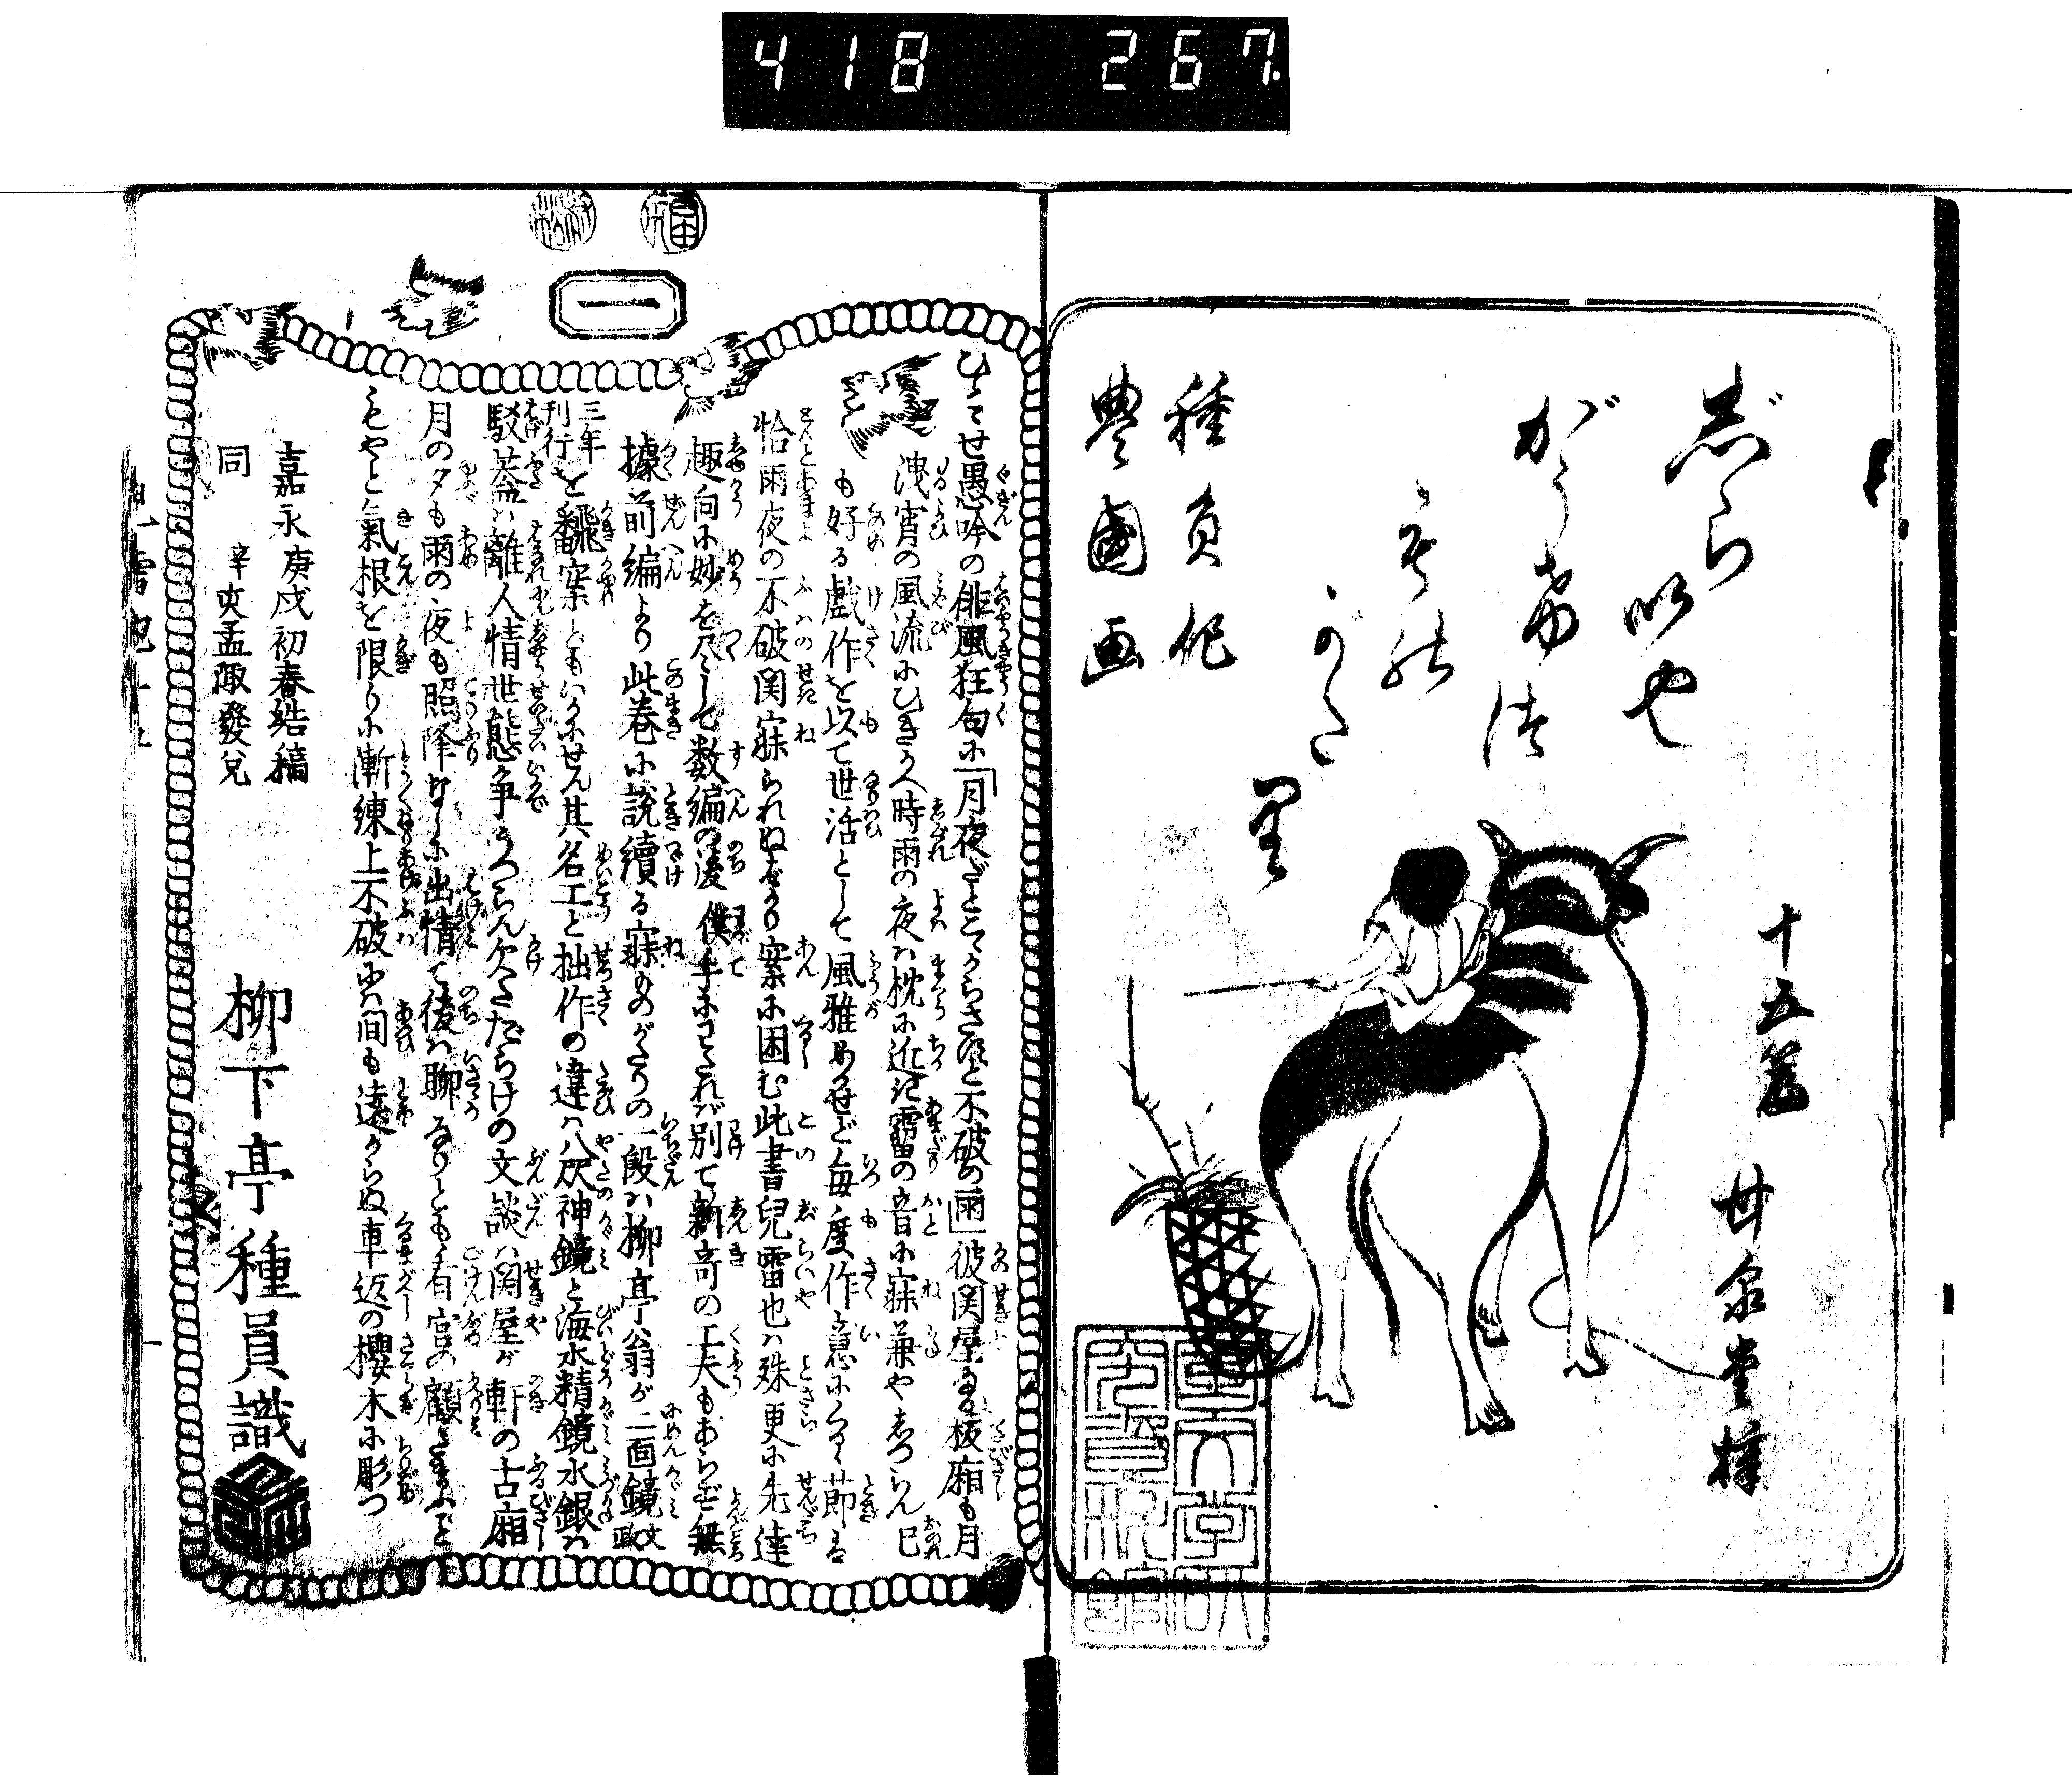 418 267
じらいや
がうけつ
ものがたり
十五篇
甘泉堂梓
種員作
豊國画
一
ひとゝせ愚吟の俳風狂句に「月夜だとてからさずと不破の雨」彼関屋なる板廂も月
洩宵の風流にひきかへ時雨の夜は枕に近き霤の音に寐兼やしつらん己
も好る戯作を以て世活として風雅めかせど毎度作意にくるしむ節は
恰雨夜の不破関寐られぬばかり案に困む此書兒雷也は殊更に先達
趣向に妙を尽して数編の後僕手にわたれば別て新奇の工夫もあらず無
據前編より此巻に説續る寐ものがたりの一段は柳亭翁が二面鏡文政
三年刊行を飜案ともいかにせん其名工と拙作の違は八咫神鏡と海水精鏡水銀は
駁蓋は離人情世態争かうつらん欠たらけの文談は関屋が軒の古廂
月の夕も雨の夜も照降なしに出情て後は聊なりとも看官の顧をたまふこと
もやと氣根を限りに漸練上不破には間も遠からぬ車返の櫻木に彫つ
嘉永庚戌初春結稿
同 辛亥孟陬發兌
柳下亭種員識